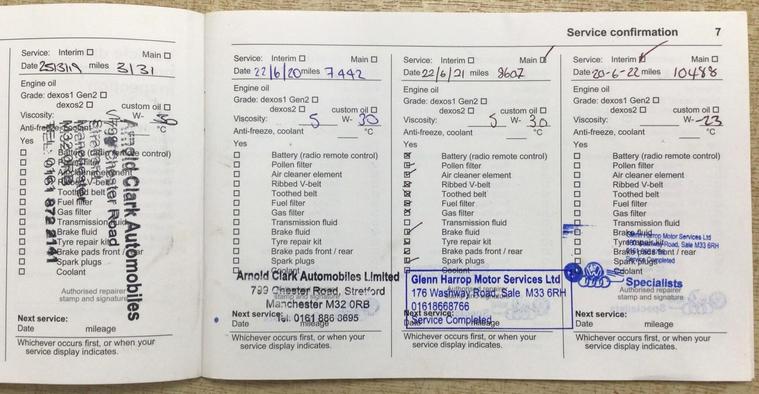 Service confirmation 7
Service: Interim Main
Date 25/3/19 miles 3131
Engine oil
Grade: dexos1 Gen2
dexos2 custom oil
Viscosity: W-
Anti-freeze, coolant °C
Yes
Battery (radio remote control)
Ribbed V-belt
Toothed belt
Fuel filter
Gas filter
Transmission fluid
Brake fluid
Tyre repair kit
Brake pads front / rear
Spark plugs
Coolant
Arnold Clark Automobiles
Chester Road
Manchester
TEL: 0161 872 2141
Authorised repairer
stamp and signature
Next service:
Date mileage
Whichever occurs first, or when your
service display indicates.
Service: Interim Main
Date 22/6/20 miles 7442
Engine oil
Grade: dexos1 Gen2
dexos2 custom oil
Viscosity: 5 W- 30
Anti-freeze, coolant °C
Yes
Battery (radio remote control)
Pollen filter
Air cleaner element
Ribbed V-belt
Toothed belt
Fuel filter
Gas filter
Transmission fluid
Brake fluid
Tyre repair kit
Brake pads front / rear
Spark plugs
Coolant
Arnold Clark Automobiles Limited
799 Chester Road, Stretford
Manchester M32 0RB
Tel: 0161 886 3695
Authorised repairer
stamp and signature
Next service:
Date mileage
Whichever occurs first, or when your
service display indicates.
Service: Interim Main
Date 22/6/21 miles 8607
Engine oil
Grade: dexos1 Gen2
dexos2 custom oil
Viscosity: 5 W- 30
Anti-freeze, coolant °C
Yes
Battery (radio remote control)
Pollen filter
Air cleaner element
Ribbed V-belt
Toothed belt
Fuel filter
Gas filter
Transmission fluid
Brake fluid
Tyre repair kit
Brake pads front / rear
Spark plugs
Coolant
Glenn Harrop Motor Services Ltd
176 Washway Road, Sale M33 6RH
01618668766
Service Completed
Authorised repairer
stamp and signature
Next service:
Date mileage
Whichever occurs first, or when your
service display indicates.
Service: Interim Main
Date 20-6-22 miles 10488
Engine oil
Grade: dexos1 Gen2
dexos2 custom oil
Viscosity: W- -23
Anti-freeze, coolant °C
Yes
Battery (radio remote control)
Pollen filter
Air cleaner element
Ribbed V-belt
Toothed belt
Fuel filter
Gas filter
Transmission fluid
Brake fluid
Tyre repair kit
Brake pads front / rear
Spark plugs
Coolant
Glenn Harrop Motor Services Ltd
Washway Road, Sale M33 6RH
Service Completed
Specialists
Authorised repairer
stamp and signature
Next service:
Date mileage
Whichever occurs first, or when your
service display indicates.